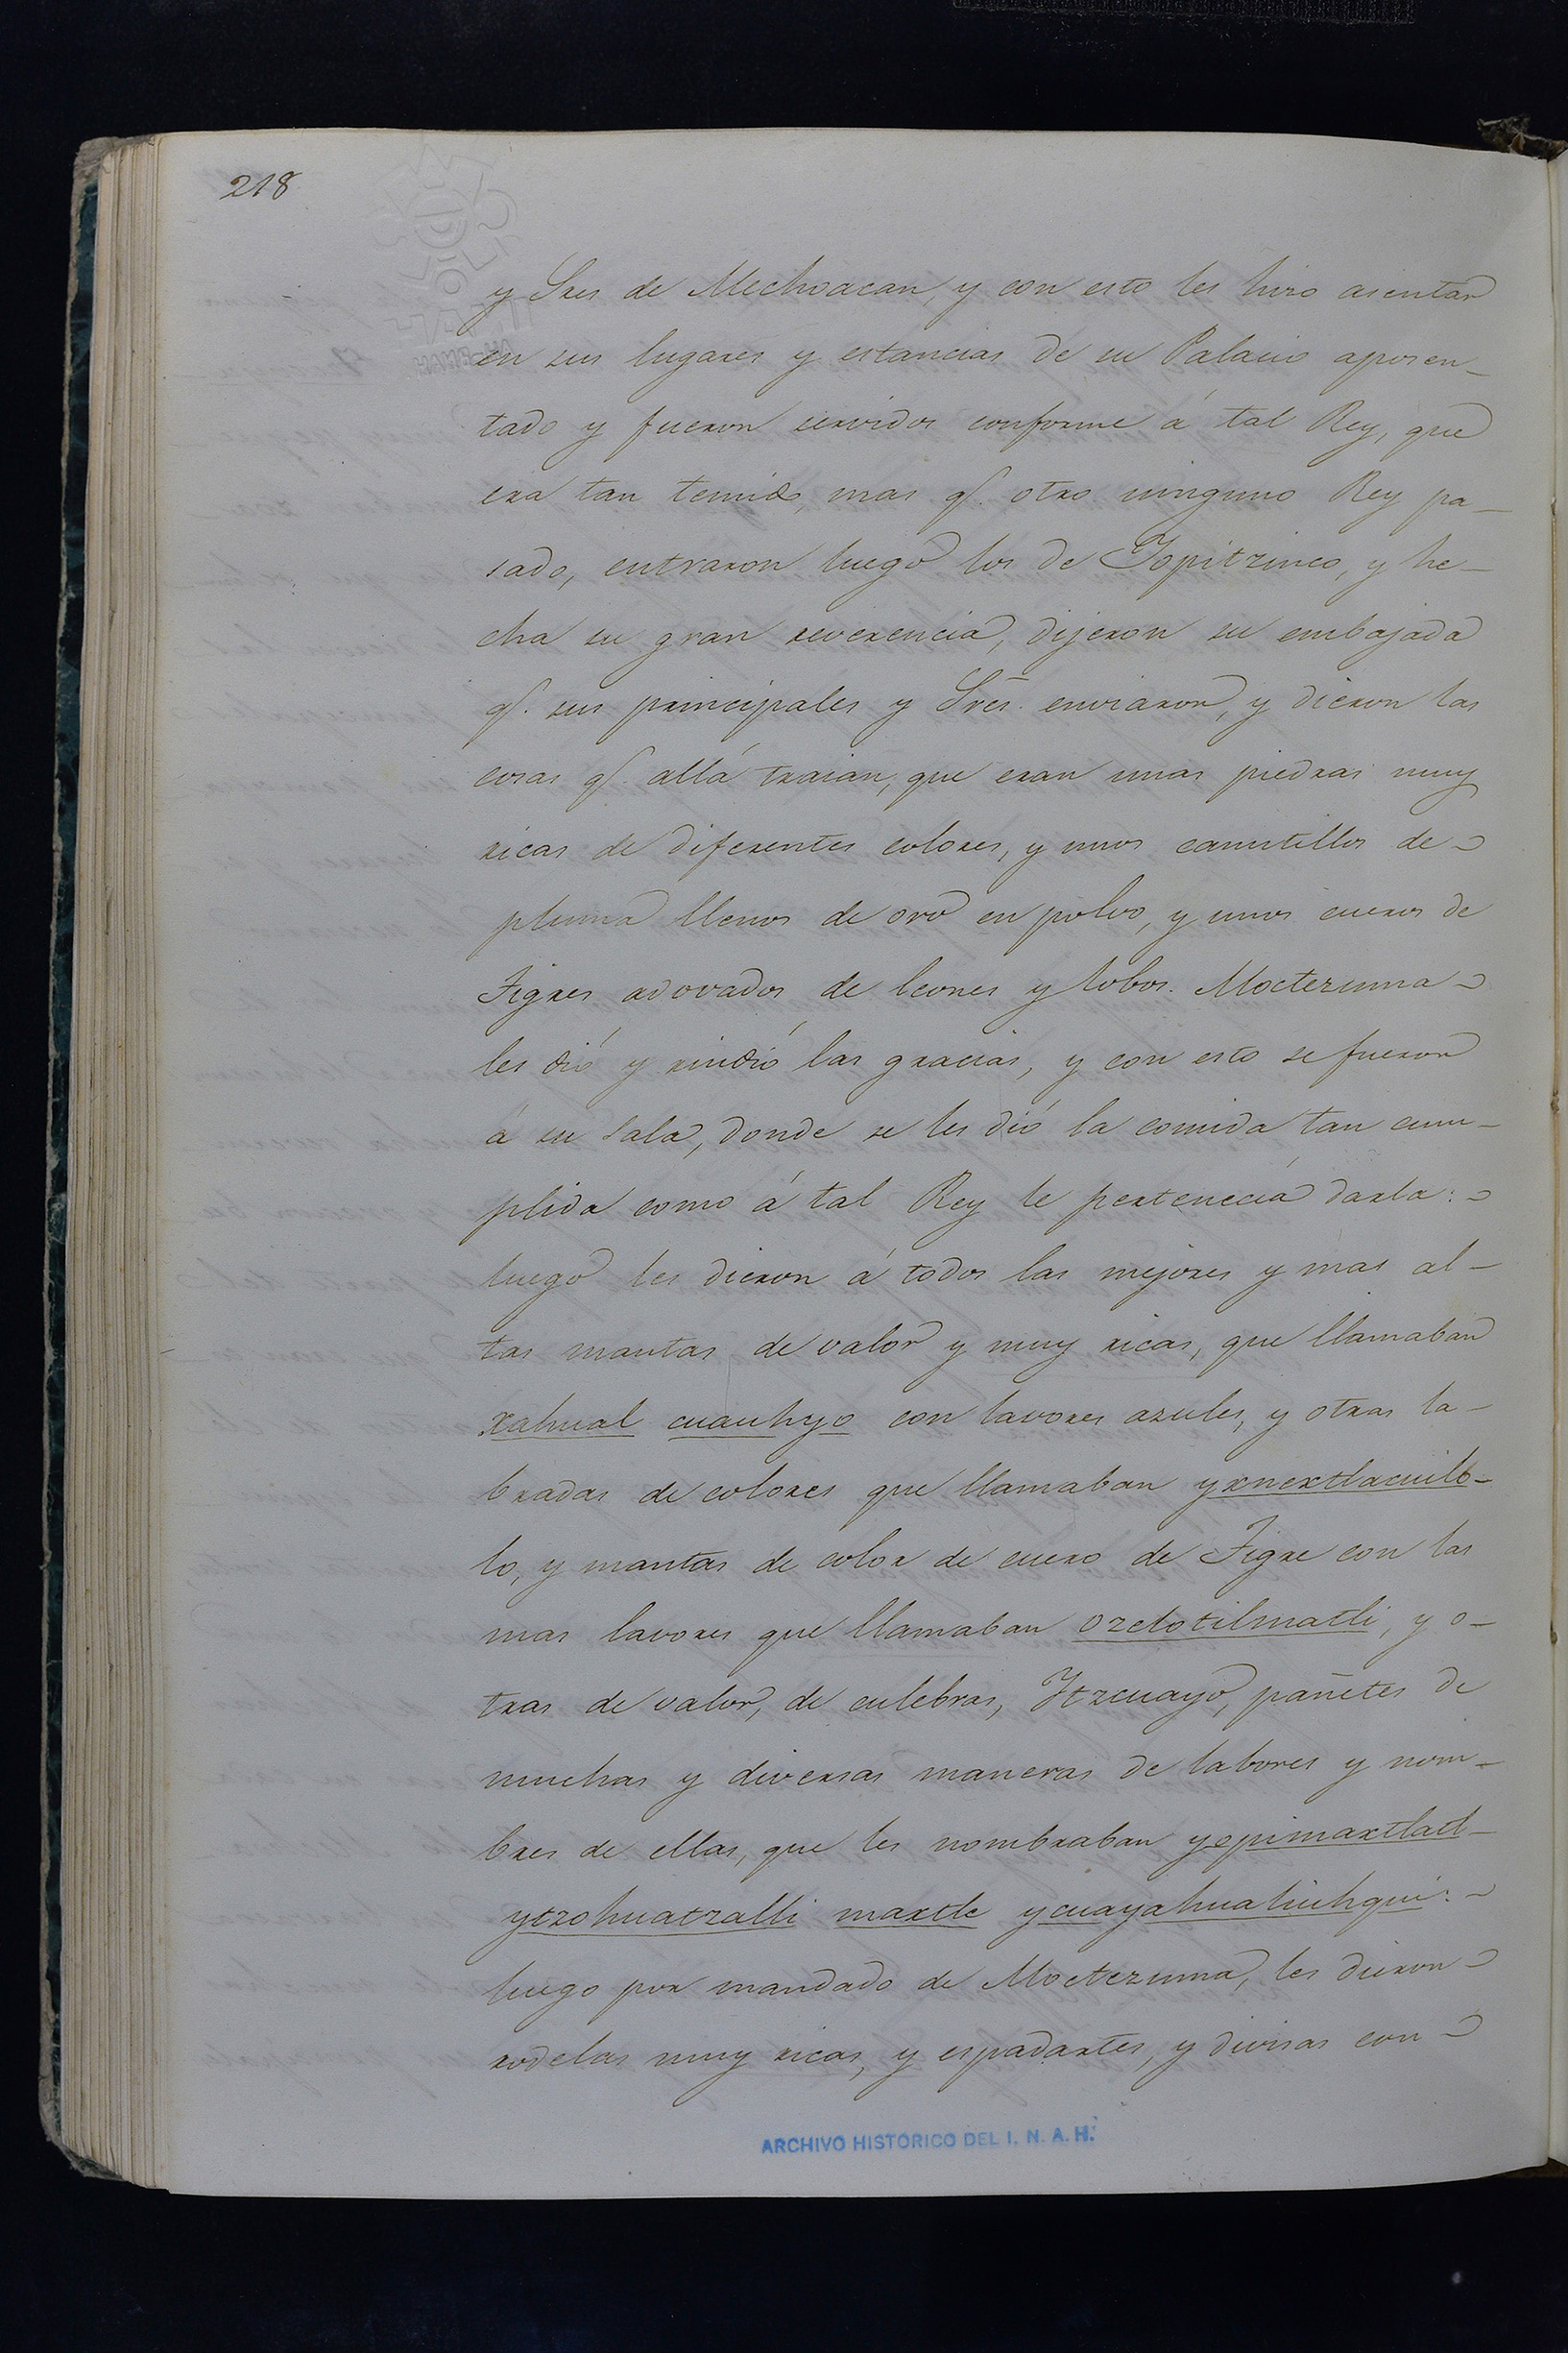 218
y Sres de Mechoacan, y con esto les hizo asentar
en sus lugares y estancias de su Palacio aposen-
tado y fueron servidos conforme á tal Rey, que
era tan temido, mas q.e otro ninguno Rey pa-
sado, entraron luego los de Yopitzinco, y he-
cha su gran reverencia, dijeron su embajada
q.e sus principales y Sres. enviaron, y dieron las
cosas q.e allá traian, que eran unas piedras muy
ricas de diferentes colores, y unos canutillos de
pluma llenos de oro en polvo, y unos cueros de
Tigres adovados de leones y lobos. Moctezuma
les dió y rindió las gracias, y con esto se fueron
á su Sala, donde se les dió la comida tan cum-
plida como á tal Rey le pertenecía darla:
luego les dieron á todos las mejores y mas al-
tas mantas de valor y muy ricas, que llamaban
xahual cuauhyo con lavores azules, y otras la-
bradas de colores que llamaban yxnextlacuilo-
lo, y mantas de color de cuero de Tigre con las
mas lavores que llamaban ozelotilmatli, y o-
tras de valor, de culebras, Ytzcuayo, pañetes de
muchas y diversas maneras de labores y nom-
bres de ellas, que les nombraban yopimaxtlatl-
ytzohuatzalli maxtle ycuayahualiuhqui:
luego por mandado de Moctezuma, les dieron
rodelas muy ricas, y espadartes, y divisas con
ARCHIVO HISTORICO DEL I. N. A. H.